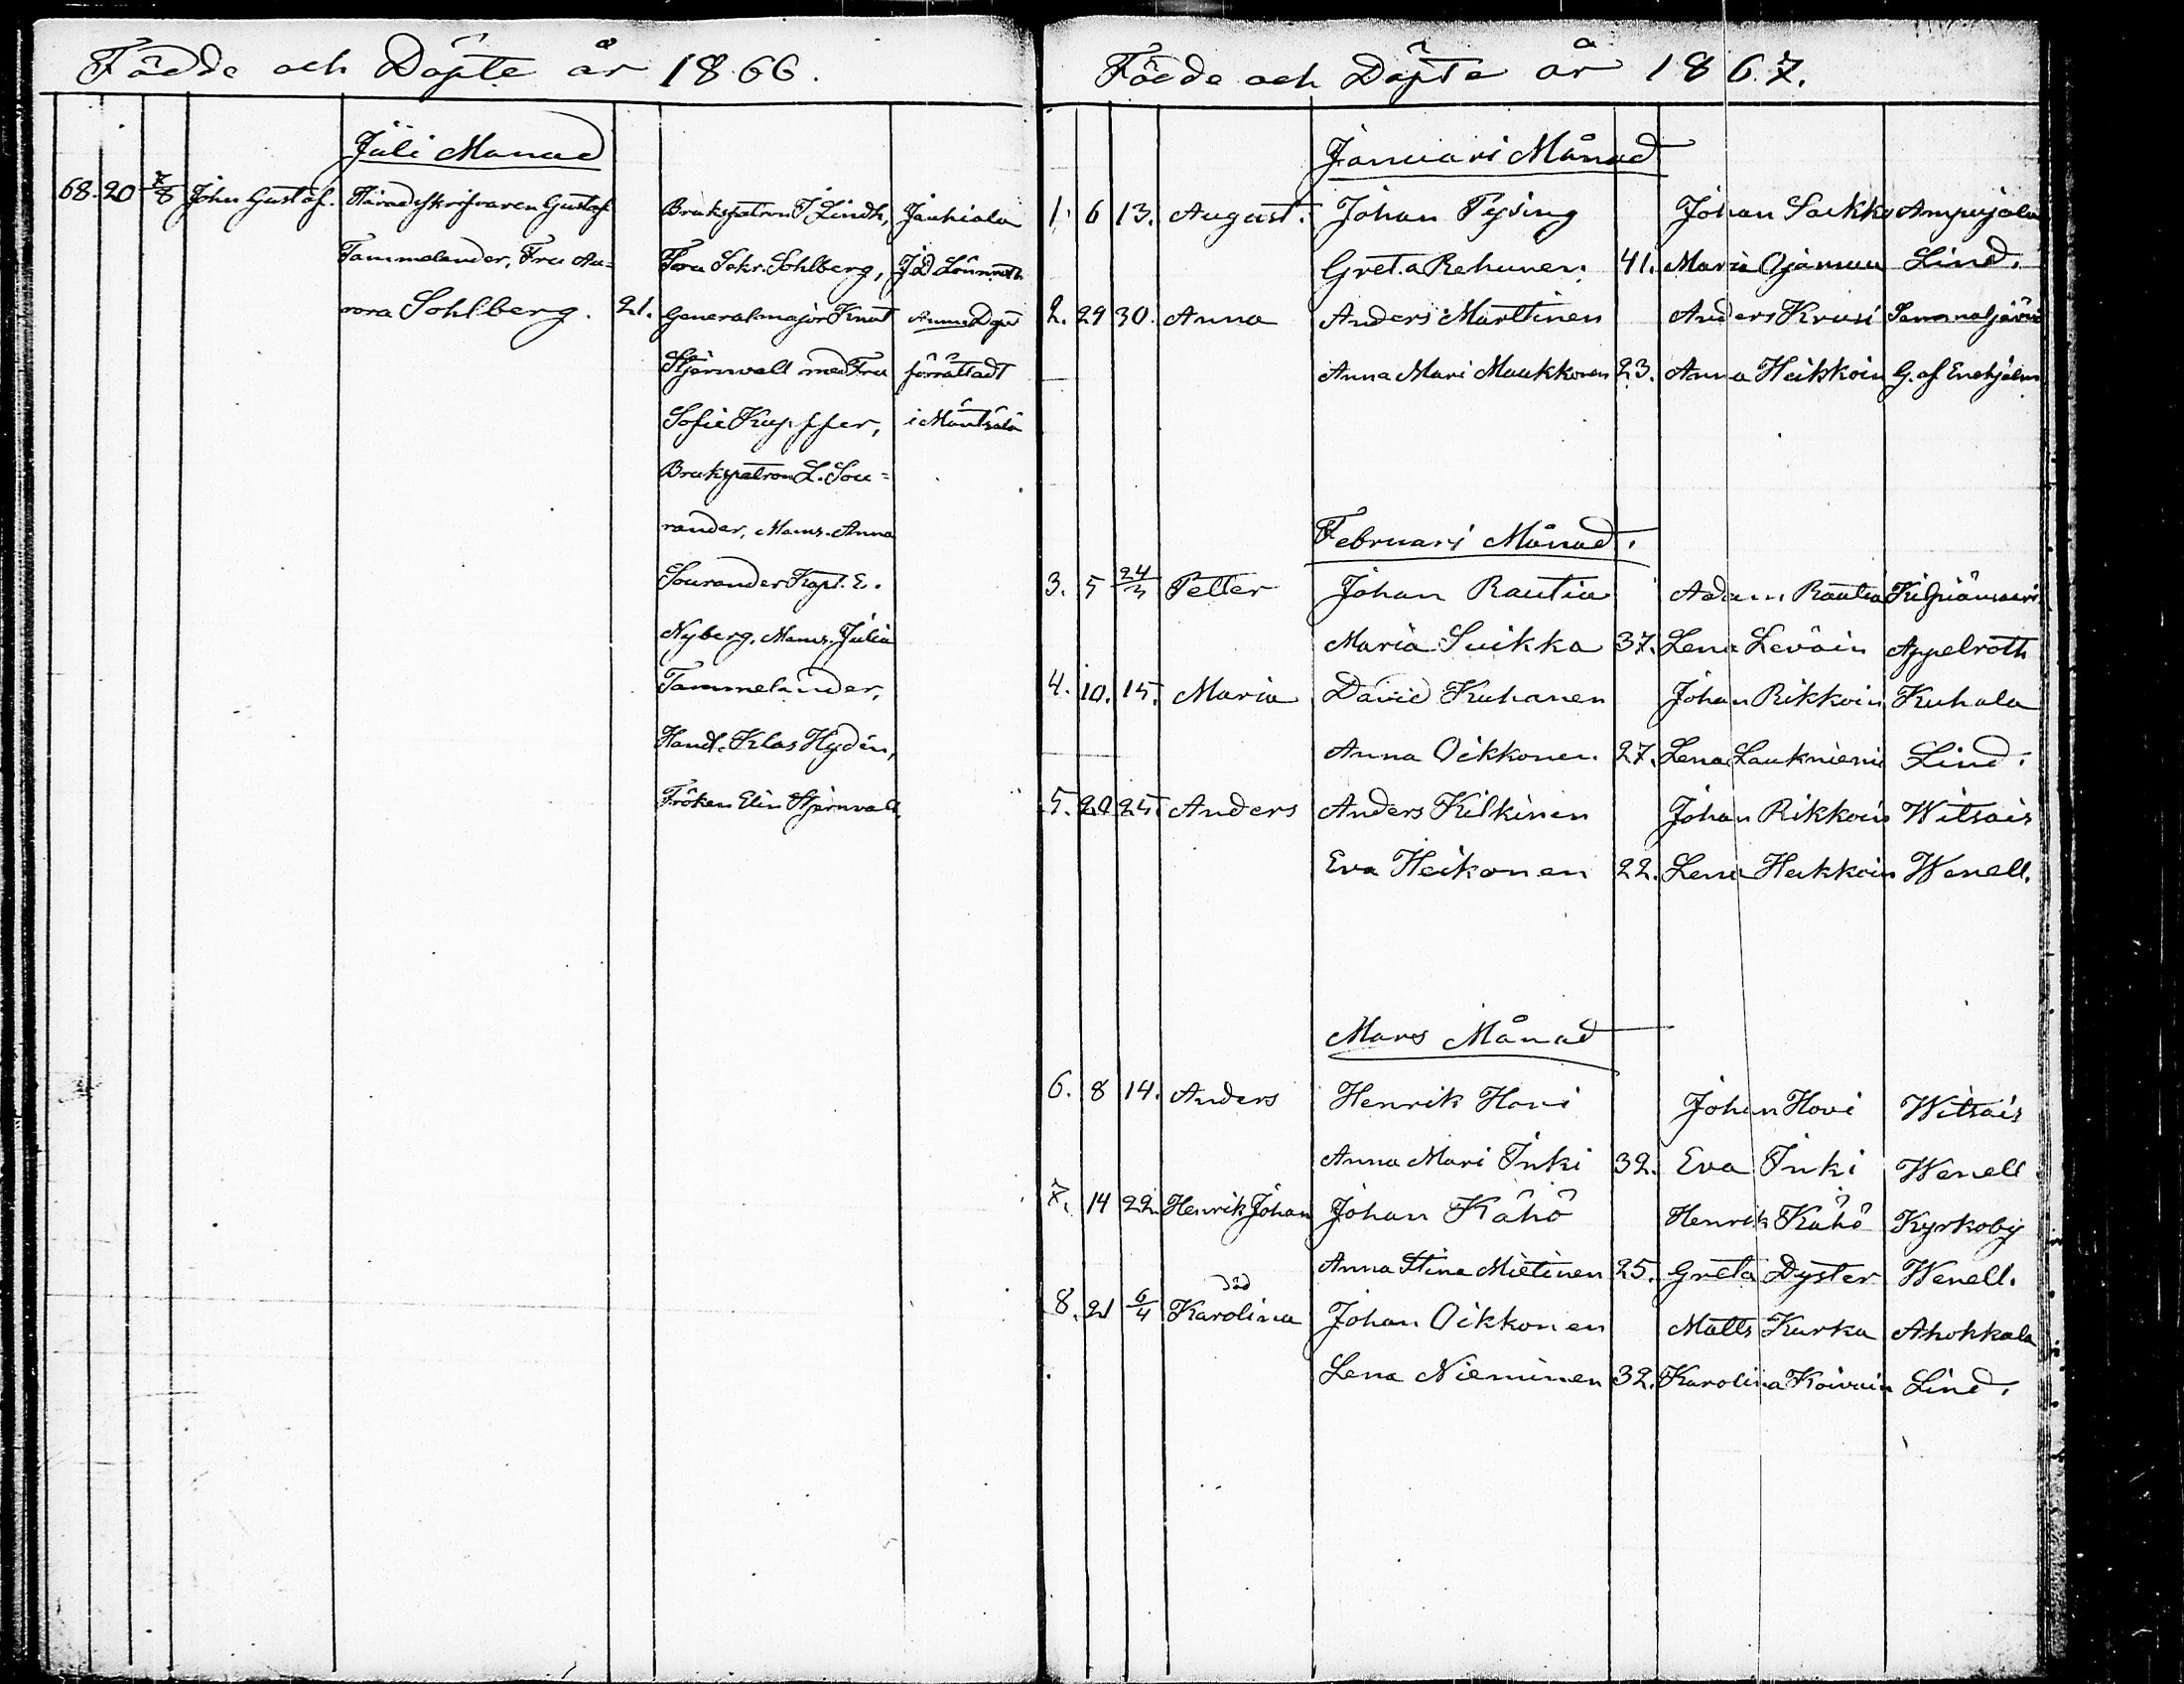 Födde och Döpte år 1866.
Juli Månad
68. 20 7/8 John Gustaf. Häradsskrifvaren Gustaf Brukspatron J Lindh, Jauhiala
Tammelander, Fru Au= Fru Sekr. Sohlberg, J D Lönnroth
rora Sohlberg. 21. Generalmajor Knut Anm. Dopet
Stjernvall med Fru förrättadt
Sofie Kupffer, i Mäntsälä
Brukspatron L. Sou=
rander, Mams. Anna
Sourander Kapt. E.
Nyberg, Mams. Julia
Tammelander,
Handl. Klas Hydén,
Fröken Elin Stjernvall.
Födde och Döpte år 1867.
Januari Månad
1. 6 13. August. Johan Pysing Johan Sackko Ampujala
Greta Rehunen. 41. Maria Ojamuu Lind.
2. 29 30. Anna Anders Marttinen Anders Krusi Sammaljärvi
Anna Mari Muukkonen 23. Anna Heikkoin G. af Enehjelm
Februari Månad.
3. 5 24/3 Petter Johan Rautia Adam Rautia Kilpiänsaari
Maria Suikka 37. Lena Leväin Appelroth
4. 10. 15. Maria David Kuhanen Johan Rikkoin Kuhala
Anna Oikkonen 27. Lena Laukniemi Lind.
5. 20 25. Anders Anders Kilkinen Johan Rikkoin Witsais
Eva Heikonen 22. Lena Heikkoin Wenell.
Mars Månad
6. 8 14. Anders Henrik Hovi Johan Hovi Witsais
Anna Mari Inki 32. Eva Inki Wenell
7. 14 22. Henrik Johan Johan Kähö Henrik Kähö Kyrkoby
Anna Stina Mietinen 25. Greta Dyster Wenell.
död
8. 21 6/4 Karolina Johan Oikkonen Matts Kurka Ahokkala
Lena Nieminen 32. Karolina Koivuin Lind.